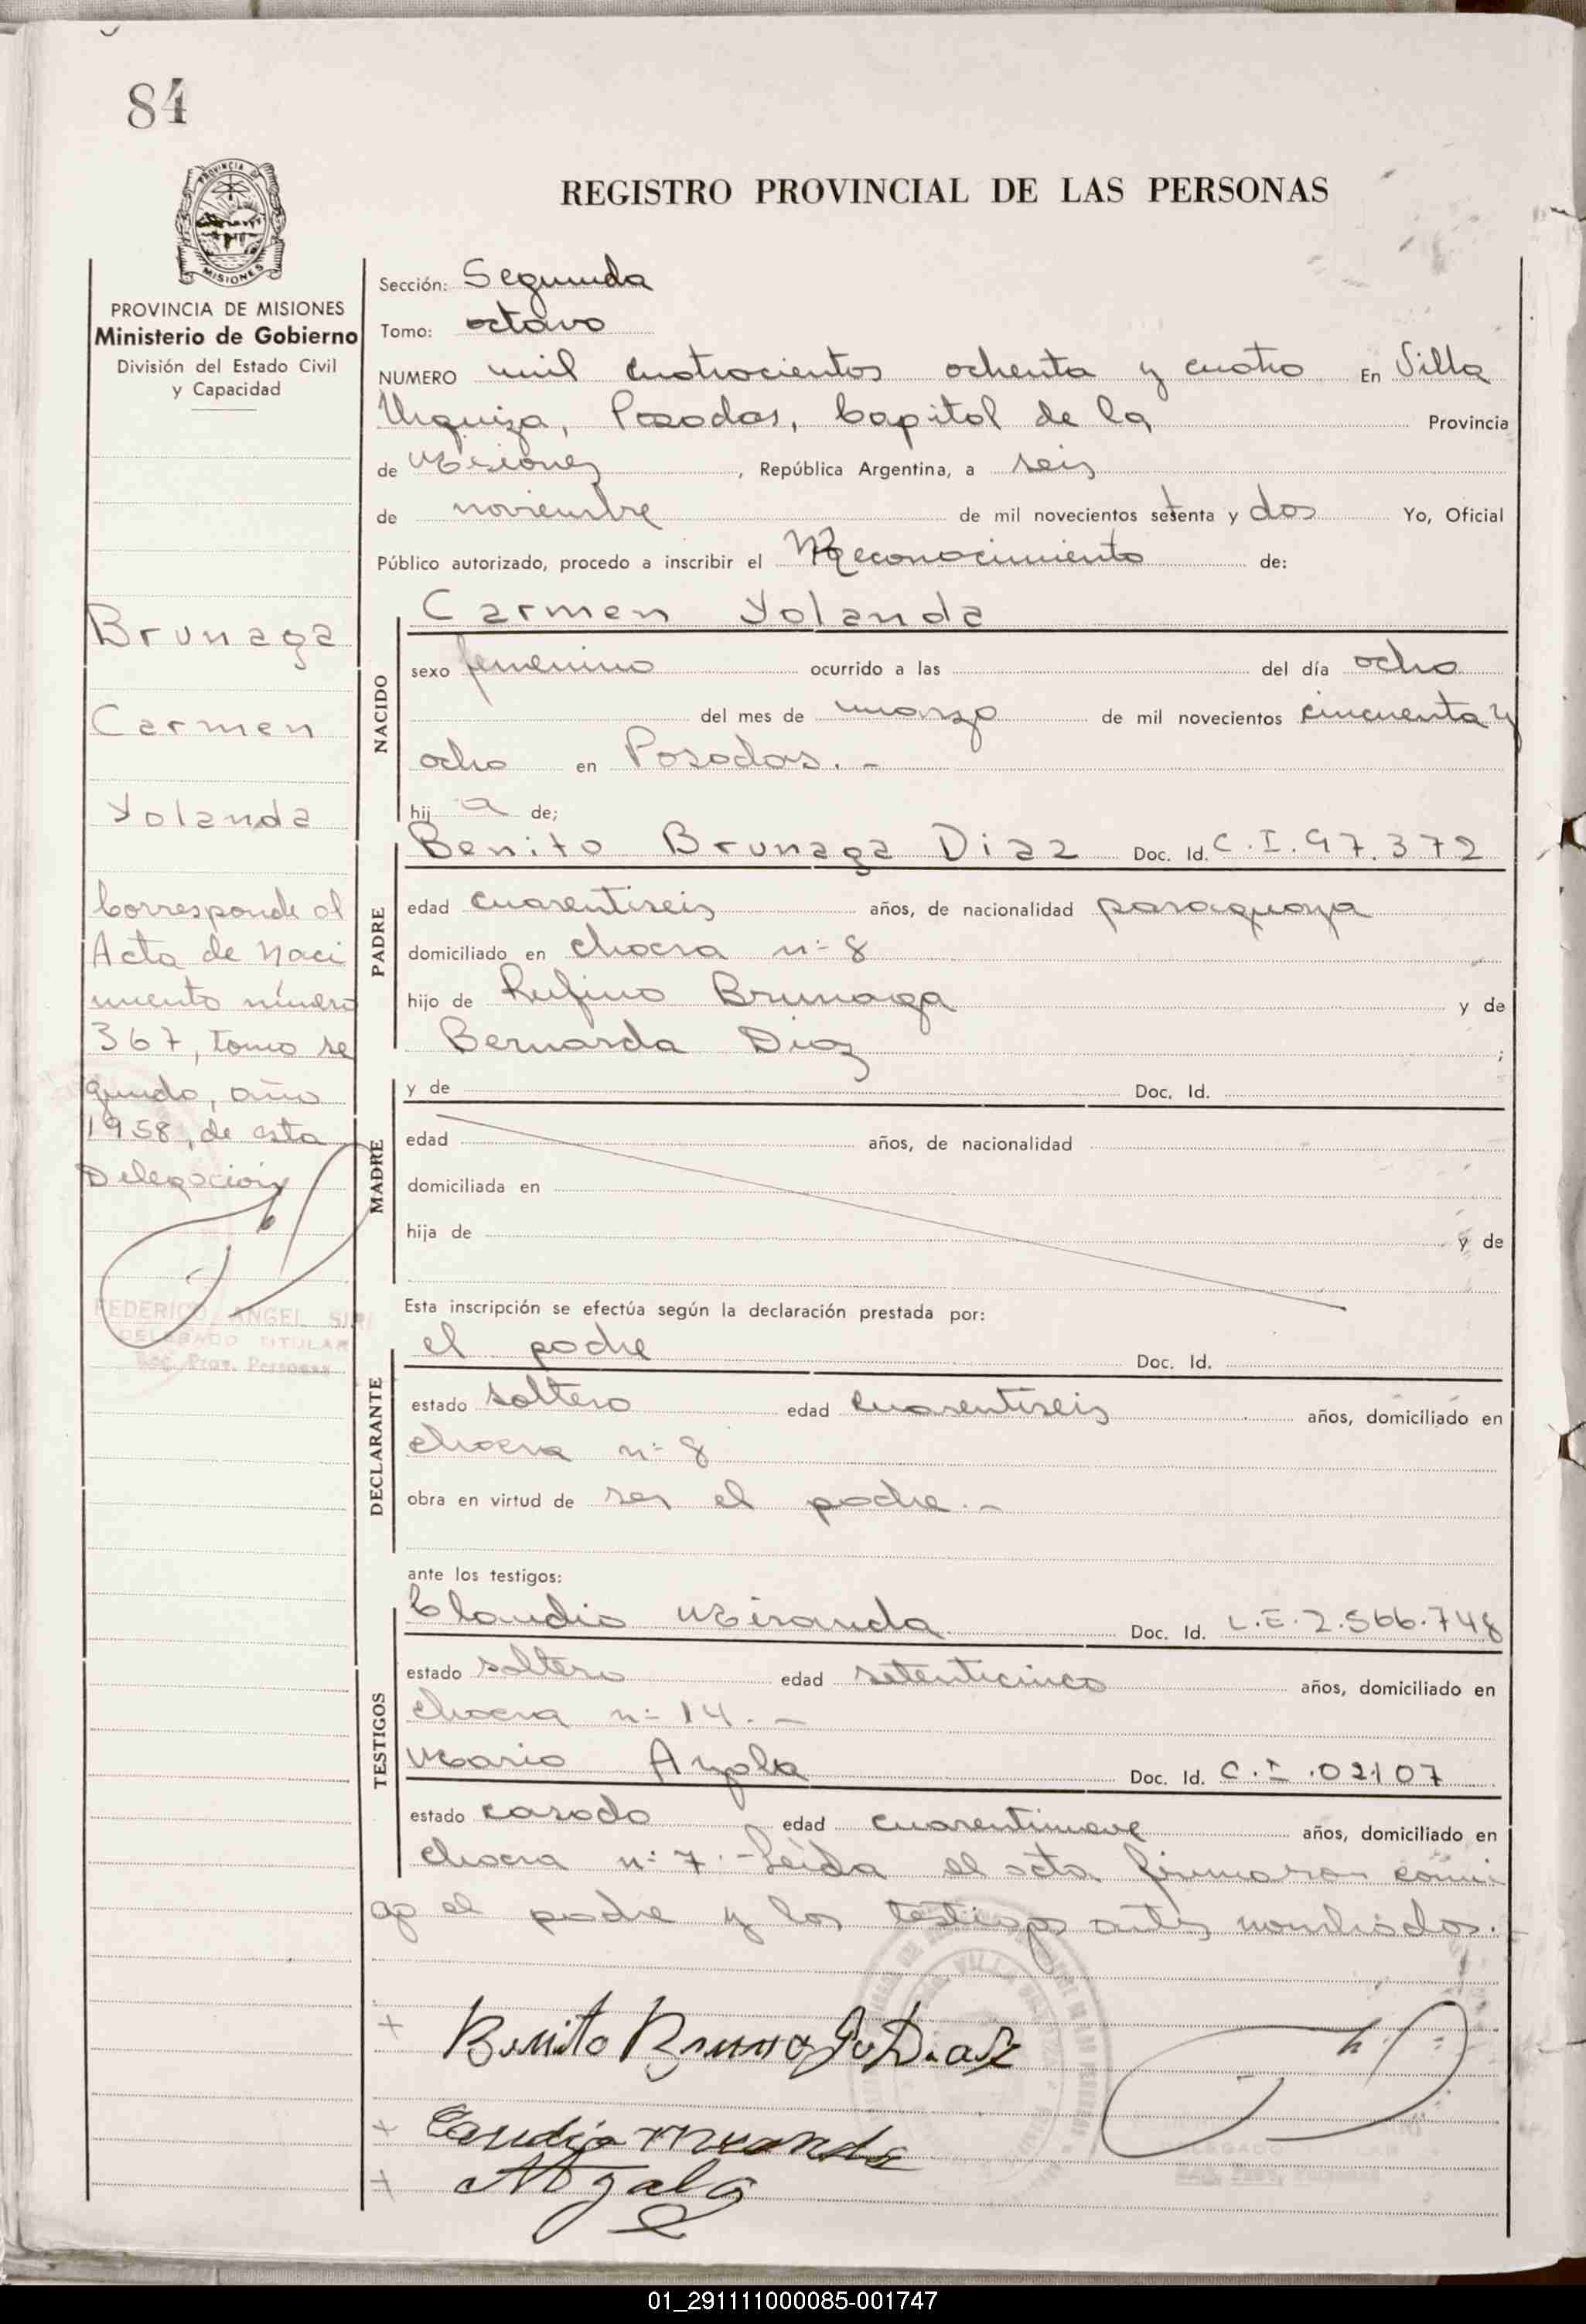 84
PROVINCIA DE
MISIONES
REGISTRO PROVINCIAL DE LAS PERSONAS
PROVINCIA DE MISIONES
Ministerio de Gobierno
División del Estado Civil
y Capacidad
Brunaga
Carmen
Yolanda
Corresponde al
Acta de Naci
miento número
367, tomo se
gundo, año
1958, de esta
Delegación
FEDERICO ANGEL
DELEGADO TITULAR
Reg. Prov. Personas
Sección: Segunda
Tomo: octavo
NUMERO mil cuatrocientos ochenta y cuatro En Villa
Urquiza, Posadas, Capital de la Provincia
de Misiones, República Argentina, a seis
de noviembre de mil novecientos setenta y dos Yo, Oficial
Público autorizado, procedo a inscribir el Reconocimiento de:
NACIDO
Carmen Yolanda
sexo femenino ocurrido a las del día ocho
del mes de marzo de mil novecientos cincuenta y
ocho en Posadas.-
hij a de;
PADRE
Benito Brunaga Diaz Doc. Id. C.I.97.372
edad cuarentiseis años, de nacionalidad paraguaya
domiciliado en chacra n=8
hijo de Rufino Brunaga y de
Bernarda Diaz ;
MADRE
y de Doc. Id.
edad años, de nacionalidad
domiciliada en
hija de y de
Esta inscripción se efectúa según la declaración prestada por:
DECLARANTE
el padre Doc. Id.
estado soltero edad cuarentiseis años, domiciliado en
chacra n=8
obra en virtud de ser el padre.-
ante los testigos:
TESTIGOS
Claudio Miranda Doc. Id. L.E.2.566.748
estado soltero edad setenticinco años, domiciliado en
chacra n=14.-
Mario Ayala Doc. Id. C.I.02107
estado casado edad cuarentinueve años, domiciliado en
chacra n:7.-Leída el acta firmaron conmi
go el padre y los testigos antes nombrados.-
Benito Brunaga Diaz
Claudio Miranda
MAyala
01_291111000085-001747